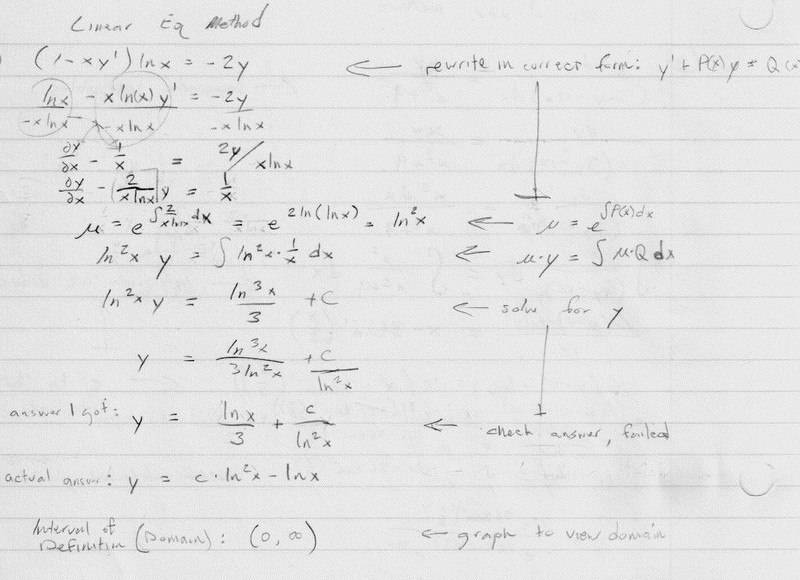 Linear Eq Method
(1-xy')lnx = -2y ← rewrite in correct form: y' + P(x)y = Q(x
lnx/-xlnx - xln(x)y'/-xlnx = -2y/-xlnx
∂y/∂x - 1/x = 2y/xlnx
∂y/∂x - [2/xlnx]y = 1/x
μ = e^∫2/xlnx dx = e^2ln(lnx) = ln²x ← μ = e^∫P(x)dx
ln²x y = ∫ln²x·1/x dx ← μ·y = ∫μ·Q dx
ln²x y = ln³x/3 + C ← solve for y
y = ln³x/3ln²x + C/ln²x
answer I got: y = lnx/3 + C/ln²x ← check answer, failed
actual answer: y = c·ln²x - lnx
Interval of
Definition (Domain): (0, ∞) ← graph to view domain